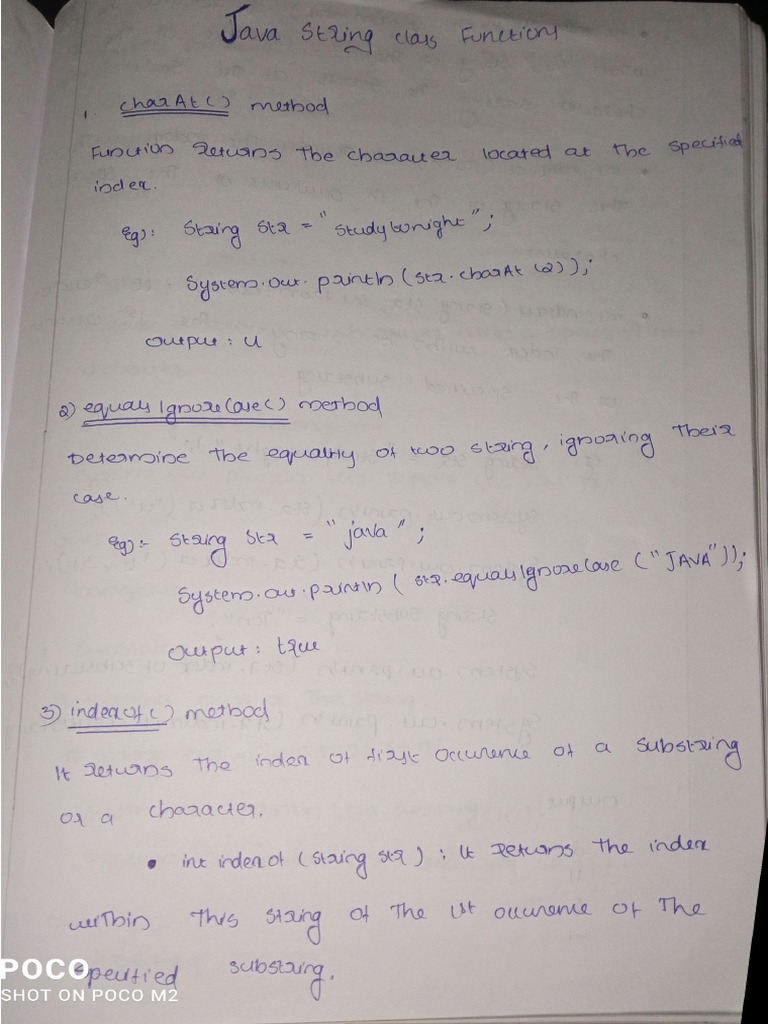 Java String class Functions
1. charAt() method
Function returns the character located at the specified
index.
Eg): String str = "studytonight";
System.out.println(str.charAt(2));
Output: u
2) equalsIgnoreCase() method
Determine the equality of two string, ignoring their
case.
Eg):- String str = "java";
System.out.println(str.equalsIgnoreCase("JAVA"));
Output: true
3) indexOf() method
It returns the index of first occurence of a substring
or a character.
• int indexOf(String str): It returns the index
within this string of the 1st occurence of the
specified substring.
POCO
SHOT ON POCO M2